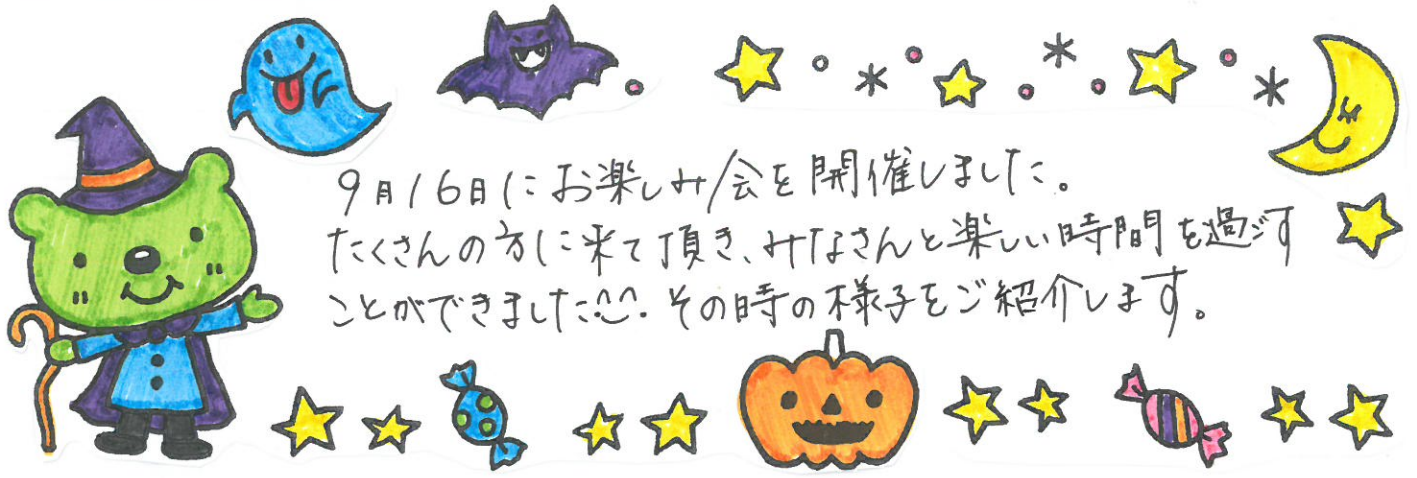 9月16日にお楽しみ会を開催しました。
たくさんの方に来て頂き、みなさんと楽しい時間を過ごす
ことができました^^. その時の様子をご紹介します。